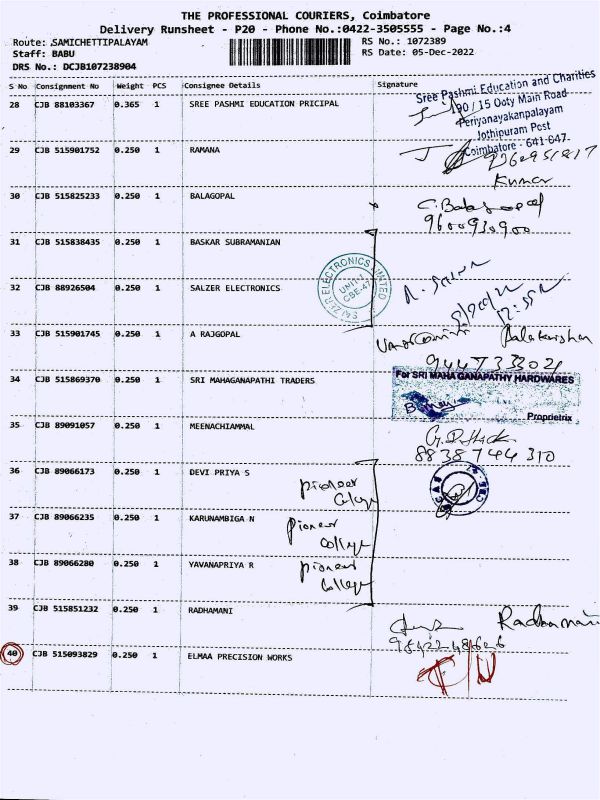 THE PROFESSIONAL COURIERS, Coimbatore
Delivery Runsheet - P20 - Phone No.:0422-3505555 - Page No.:4
Route: SAMICHETTIPALAYAM RS No.: 1072389
Staff: BABU RS Date: 05-Dec-2022
DRS No.: DCJB107238904
S No Consignment No Weight PCS Consignee Details Signature
28 CJB 88103367 0.365 1 SREE PASHMI EDUCATION PRICIPAL
Sree Pashmi Education and Charities
190 / 15 Ooty Main Road
Periyanayakanpalayam
Jothipuram Post
Coimbatore - 641 047.
29 CJB 515901752 0.250 1 RAMANA
Kumar
30 CJB 515825233 0.250 1 BALAGOPAL
C. Balagopal
9600930900
31 CJB 515838435 0.250 1 BASKAR SUBRAMANIAN
32 CJB 88926504 0.250 1 SALZER ELECTRONICS
SALZER ELECTRONICS LIMITED
UNIT-1
CBE-47
33 CJB 515901745 0.250 1 A RAJGOPAL
Balakrishna
34 CJB 515869370 0.250 1 SRI MAHAGANAPATHI TRADERS
For SRI MAHA GANAPATHY HARDWARES
Proprietrix
35 CJB 89091057 0.250 1 MEENACHIAMMAL
8838744310
36 CJB 89066173 0.250 1 DEVI PRIYA S
Pioneer
College
37 CJB 89066235 0.250 1 KARUNAMBIGA N
Pioneer
College
38 CJB 89066280 0.250 1 YAVANAPRIYA R
Pioneer
College
39 CJB 515851232 0.250 1 RADHAMANI
Radhamani
40 CJB 515093829 0.250 1 ELMAA PRECISION WORKS